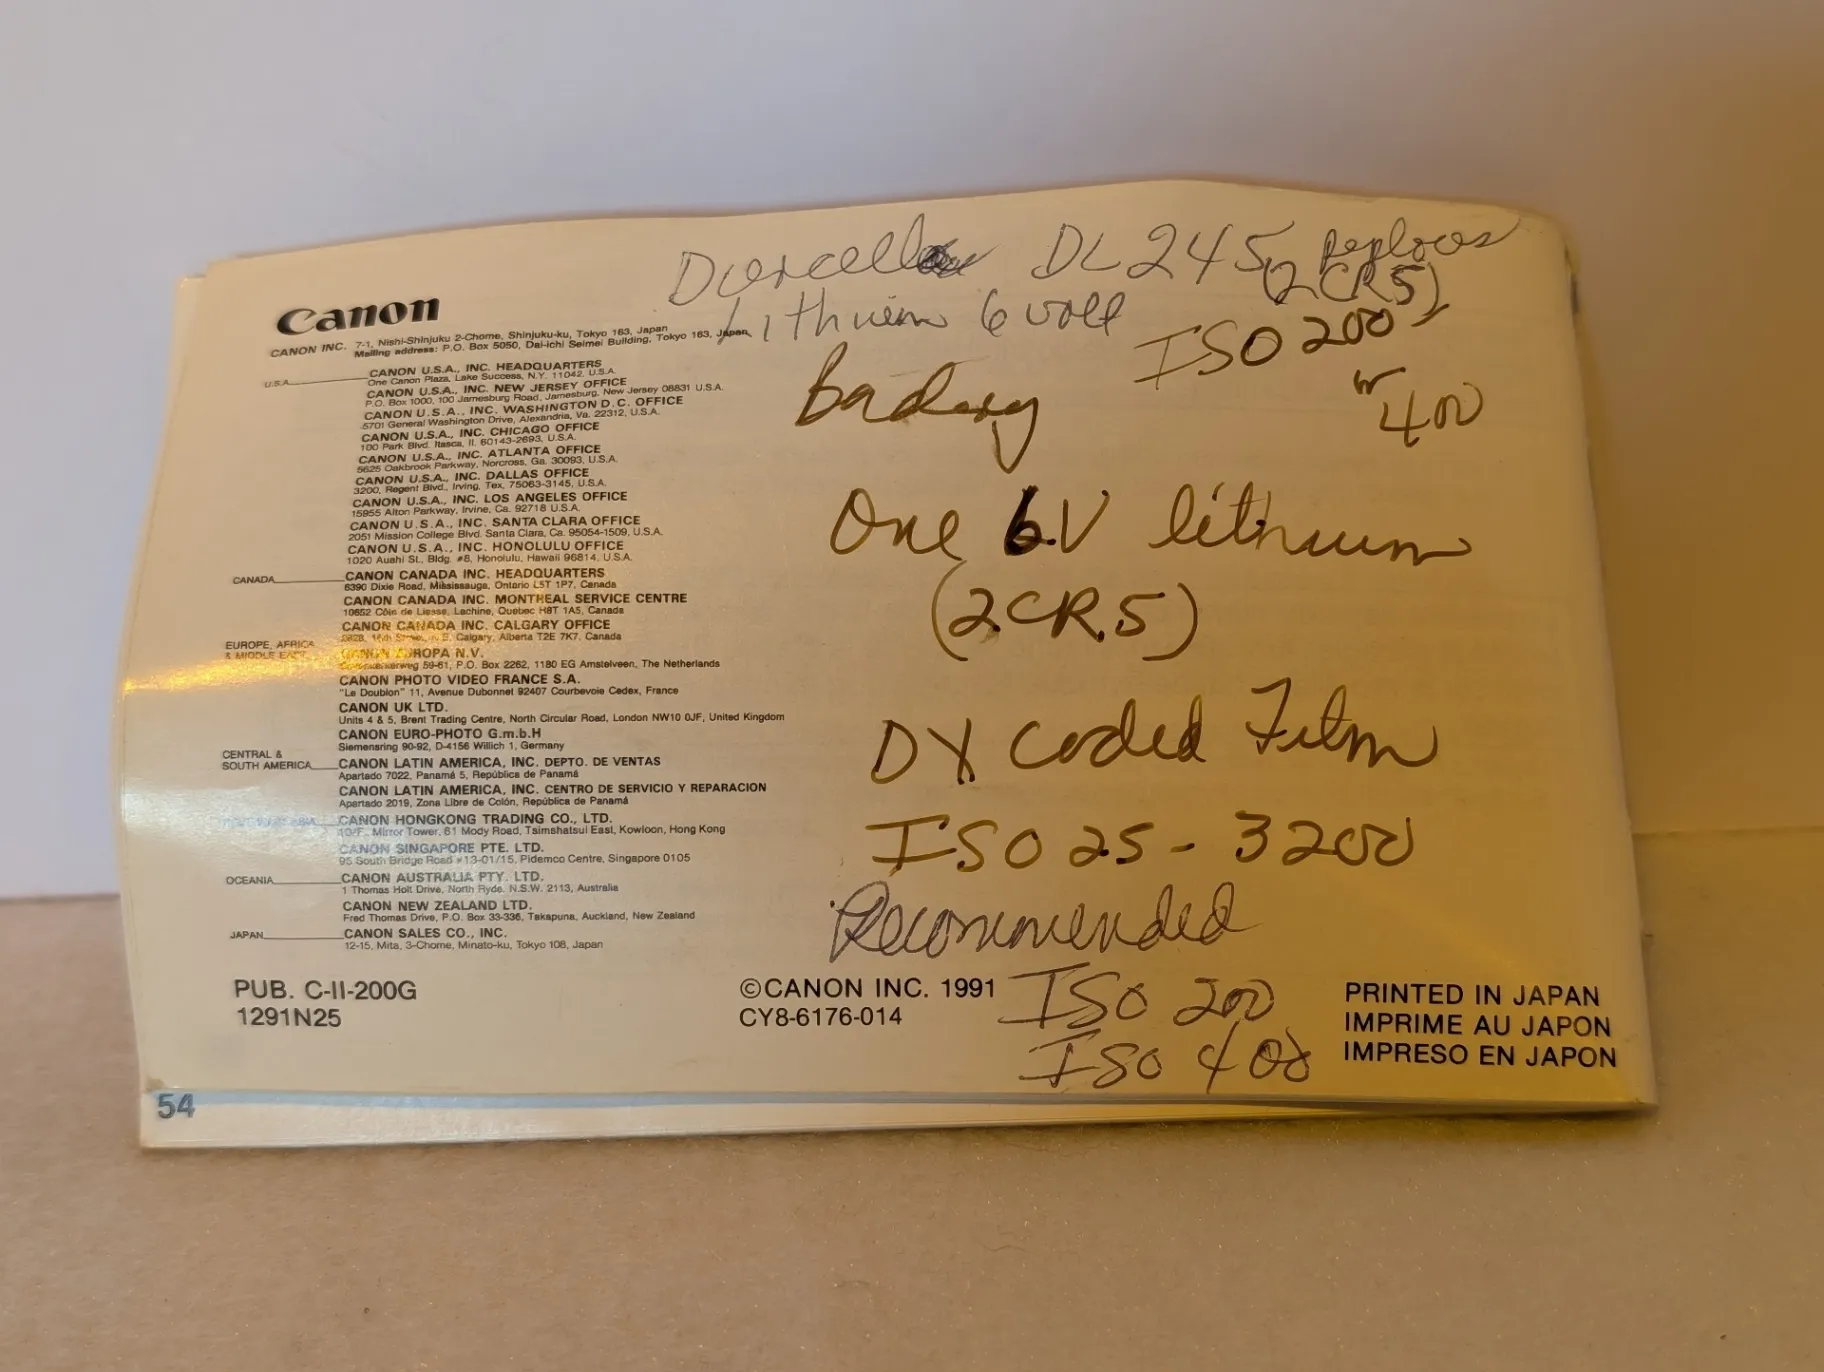 Duracell DL 245 replaces
(2CR5)
Lithium 6 volt
ISO 200
or
400
Battery
One 6V lithium
(2CR5)
DX coded Film
ISO 25 - 3200
Recommended
ISO 200
ISO 400
Canon
CANON INC. 7-1, Nishi-Shinjuku 2-Chome, Shinjuku-ku, Tokyo 163, Japan
Mailing address: P.O. Box 5050, Dai-ichi Seimei Building, Tokyo 163, Japan
U.S.A. CANON U.S.A., INC. HEADQUARTERS
One Canon Plaza, Lake Success, N.Y. 11042, U.S.A.
CANON U.S.A., INC. NEW JERSEY OFFICE
P.O. Box 1000, 100 Jamesburg Road, Jamesburg, New Jersey 08831 U.S.A.
CANON U.S.A., INC. WASHINGTON D.C. OFFICE
5701 General Washington Drive, Alexandria, Va. 22312, U.S.A.
CANON U.S.A., INC. CHICAGO OFFICE
100 Park Blvd. Itasca, Il. 60143-2693, U.S.A.
CANON U.S.A., INC. ATLANTA OFFICE
5625 Oakbrook Parkway, Norcross, Ga. 30093, U.S.A.
CANON U.S.A., INC. DALLAS OFFICE
3200, Regent Blvd., Irving, Tex. 75063-3145, U.S.A.
CANON U.S.A., INC. LOS ANGELES OFFICE
15955 Alton Parkway, Irvine, Ca. 92718 U.S.A.
CANON U.S.A., INC. SANTA CLARA OFFICE
2051 Mission College Blvd. Santa Clara, Ca. 95054-1509, U.S.A.
CANON U.S.A., INC. HONOLULU OFFICE
1020 Auahi St., Bldg. #8, Honolulu, Hawaii 96814, U.S.A.
CANADA CANON CANADA INC. HEADQUARTERS
6390 Dixie Road, Mississauga, Ontario L5T 1P7, Canada
CANON CANADA INC. MONTREAL SERVICE CENTRE
10652 Côte de Liesse, Lachine, Quebec H8T 1A5, Canada
CANON CANADA INC. CALGARY OFFICE
Calgary, Alberta T2E 7K7, Canada
EUROPE, AFRICA & MIDDLE EAST CANON EUROPA N.V.
59-61, P.O. Box 2262, 1180 EG Amstelveen, The Netherlands
CANON PHOTO VIDEO FRANCE S.A.
"Le Doublon" 11, Avenue Dubonnet 92407 Courbevoie Cedex, France
CANON UK LTD.
Units 4 & 5, Brent Trading Centre, North Circular Road, London NW10 0JF, United Kingdom
CANON EURO-PHOTO G.m.b.H
Siemensring 90-92, D-4156 Willich 1, Germany
CENTRAL & SOUTH AMERICA CANON LATIN AMERICA, INC. DEPTO. DE VENTAS
Apartado 7022, Panamá 5, República de Panamá
CANON LATIN AMERICA, INC. CENTRO DE SERVICIO Y REPARACION
Apartado 2019, Zona Libre de Colón, República de Panamá
CANON HONGKONG TRADING CO., LTD.
10/F., Mirror Tower, 61 Mody Road, Tsimshatsui East, Kowloon, Hong Kong
CANON SINGAPORE PTE. LTD.
95 South Bridge Road #13-01/15, Pidemco Centre, Singapore 0105
OCEANIA CANON AUSTRALIA PTY. LTD.
1 Thomas Holt Drive, North Ryde. N.S.W. 2113, Australia
CANON NEW ZEALAND LTD.
Fred Thomas Drive, P.O. Box 33-336, Takapuna, Auckland, New Zealand
JAPAN CANON SALES CO., INC.
12-15, Mita, 3-Chome, Minato-ku, Tokyo 108, Japan
PUB. C-II-200G
1291N25
©CANON INC. 1991
CY8-6176-014
PRINTED IN JAPAN
IMPRIME AU JAPON
IMPRESO EN JAPON
54